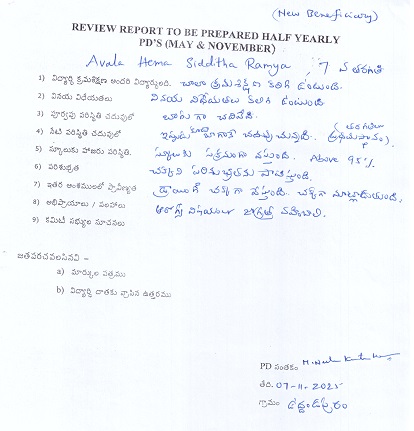 (New Beneficiary)
REVIEW REPORT TO BE PREPARED HALF YEARLY
PD'S (MAY & NOVEMBER)
Avala Hema Sidditha Ramya, 7 వ తరగతి
1) విద్యార్థి క్రమశిక్షణ అందరి విద్యార్థులలో. చాలా క్రమశిక్షణ కలిగి ఉంటుంది.
2) వినయ విధేయతలు వినయ విధేయతలు కలిగి ఉంటుంది
3) పూర్వపు పరిస్థితి చదువులో బాగా చదివేది.
4) నేటి పరిస్థితి చదువులో ఇప్పుడు కూడా బాగానే చదువుచున్నది. (తరగతిలో ప్రథమస్థానం)
5) స్కూలుకు హాజరు పరిస్థితి. స్కూలుకు సక్రమంగా వస్తుంది. Above 95%.
6) పరిశుభ్రత చక్కని పరిశుభ్రతను పాటిస్తుంది.
7) ఇతర అంశములలో ప్రావీణ్యత డ్రాయింగ్ చక్కగా వేస్తుంది. చక్కగా మాట్లాడుతుంది.
8) అభిప్రాయాలు / సలహాలు ఆరోగ్య విషయంలో జాగ్రత్త వహించాలి.
9) కమిటీ సభ్యుల సూచనలు
జతపరచవలసినవి –
a) మార్కుల పత్రము
b) విద్యార్థి దాతకు వ్రాసిన ఉత్తరము
PD సంతకం
తేది. 07-11-2025
గ్రామం ఉద్దండపురం